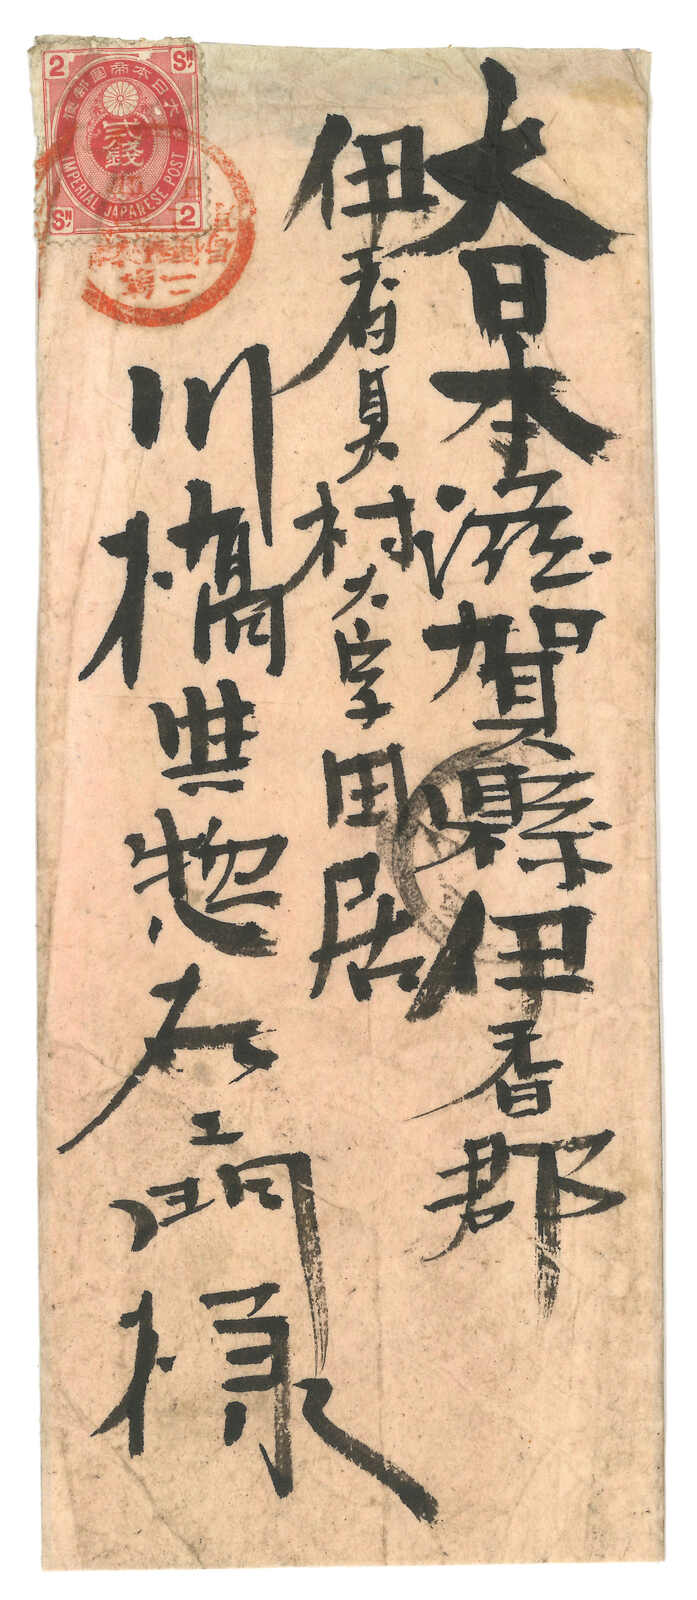 大日本滋賀縣伊香郡
伊香具村大字田居
川橋與惣右衛門様
2 Sn
大日本帝國郵便
貳錢
IMPERIAL JAPANESE POST
Sn 2